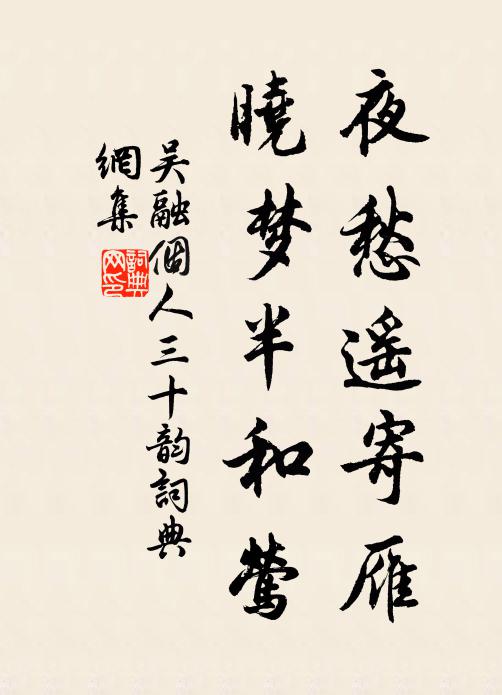 夜愁遥寄雁
曉梦半和鶯
吴融個人三十韵詞典
網集
詞典
网印